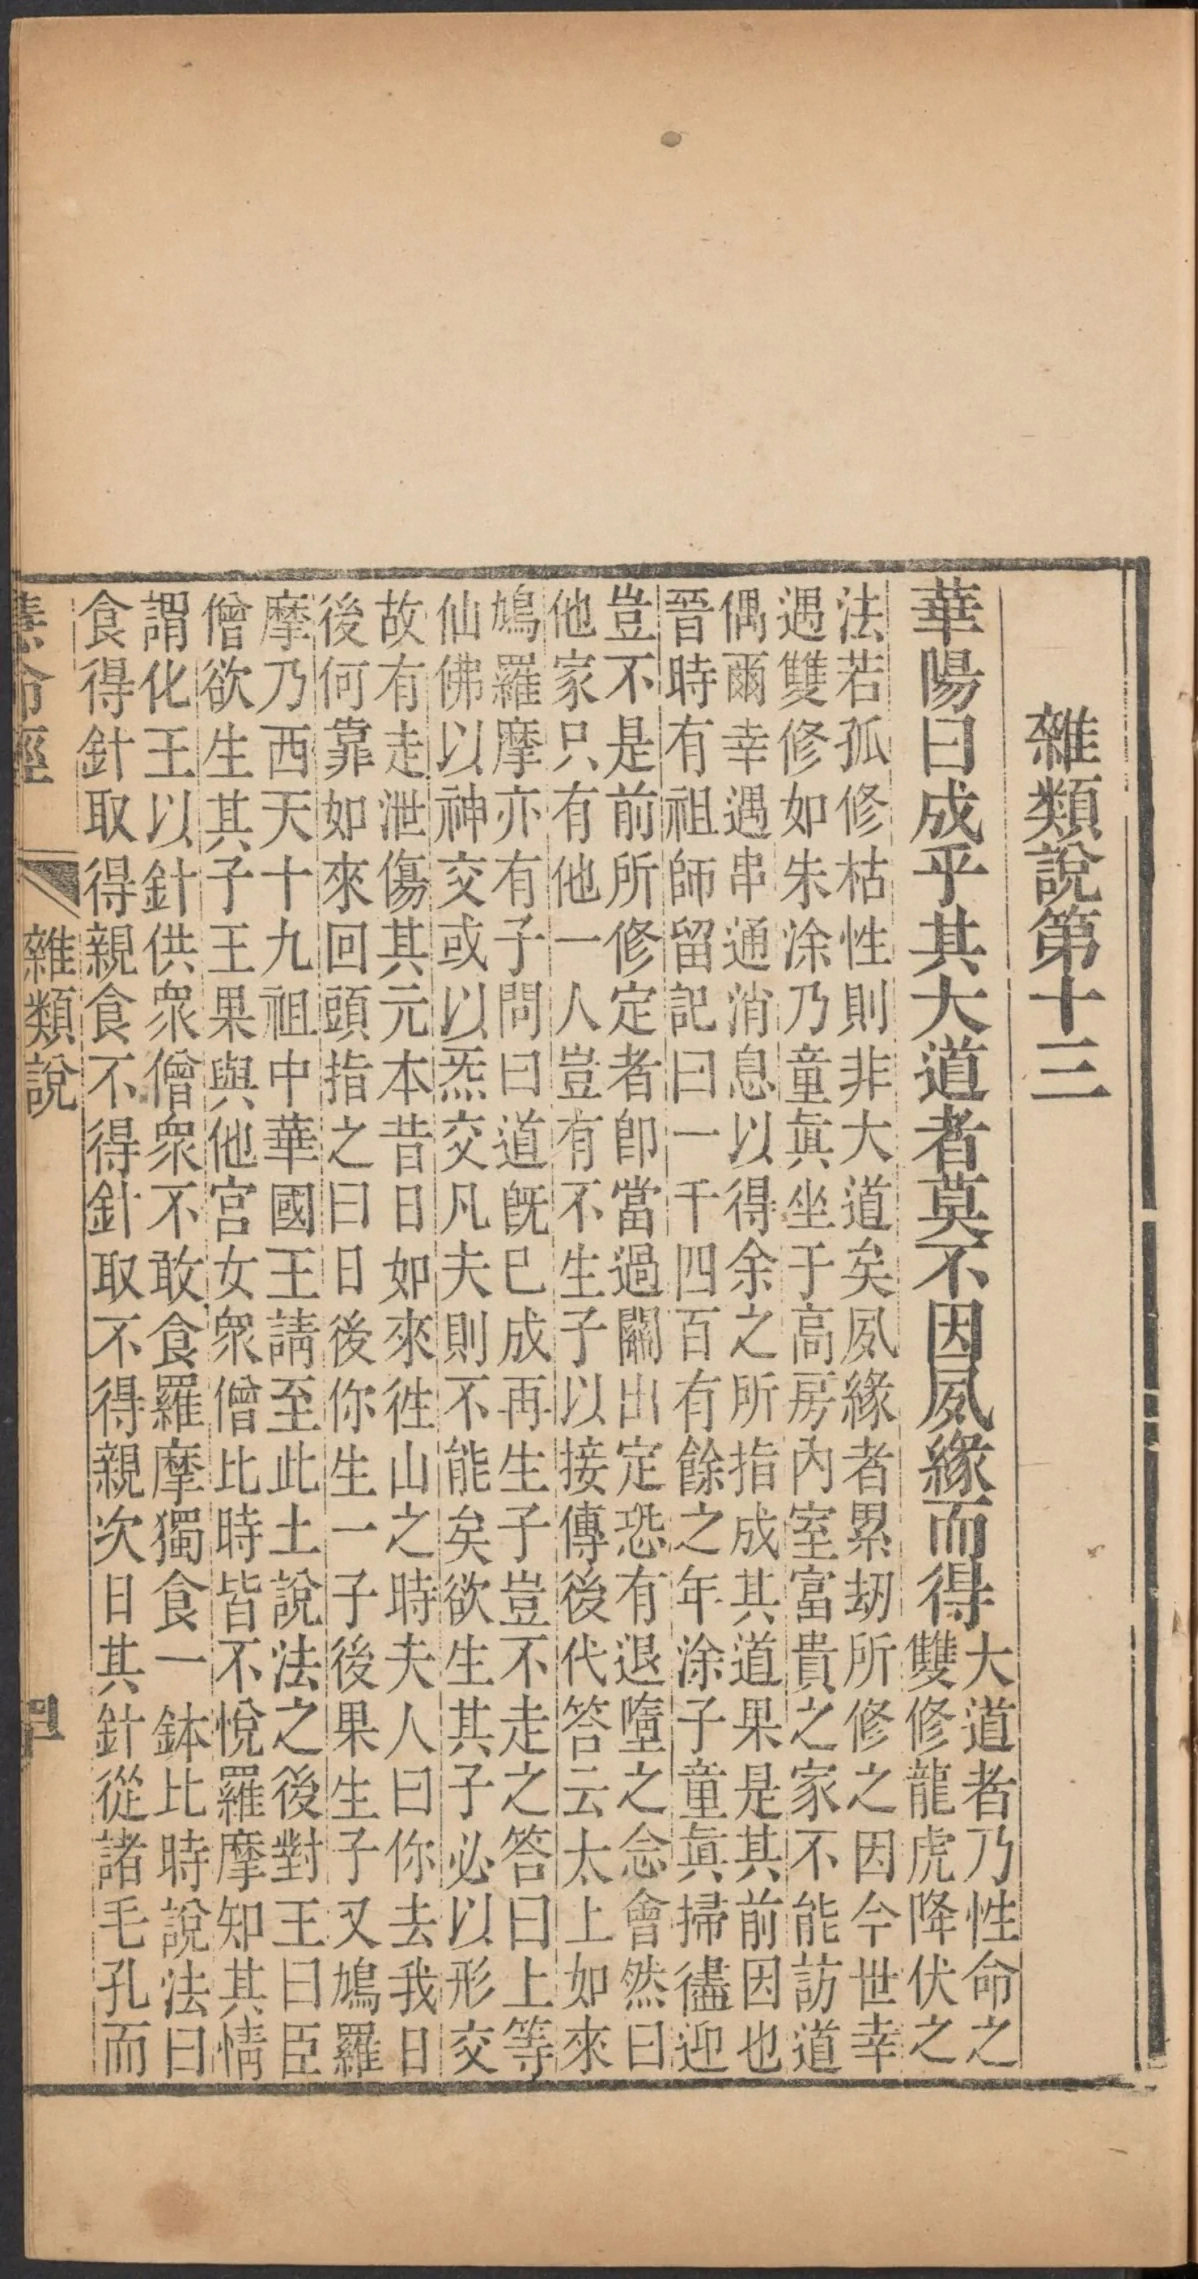 雜類說第十三
華陽曰成乎其大道者莫不因夙緣而得
大道者乃性命之
雙修龍虎降伏之
法若孤修枯性則非大道矣夙緣者累刼所修之因今世幸
遇雙修如朱涂乃童眞坐于高房內室富貴之家不能訪道
偶爾幸遇串通消息以得余之所指成其道果是其前因也
晉時有祖師留記曰一千四百有餘之年涂子童眞掃儘迎
豈不是前所修定者卽當過關出定恐有退墮之念會然曰
他家只有他一人豈有不生子以接傳後代答云太上如來
鳩羅摩亦有子問曰道旣已成再生子豈不走之答曰上等
仙佛以神交或以炁交凡夫則不能矣欲生其子必以形交
故有走泄傷其元本昔日如來徃山之時夫人曰你去我日
後何靠如來回頭指之曰日後你生一子後果生子又鳩羅
摩乃西天十九祖中華國王請至此土說法之後對王曰臣
僧欲生其子王果與他宮女衆僧比時皆不悅羅摩知其情
謂化王以針供衆僧衆不敢食羅摩獨食一鉢比時說法曰
食得針取得親食不得針取不得親次日其針從諸毛孔而
慧命經
雜類說